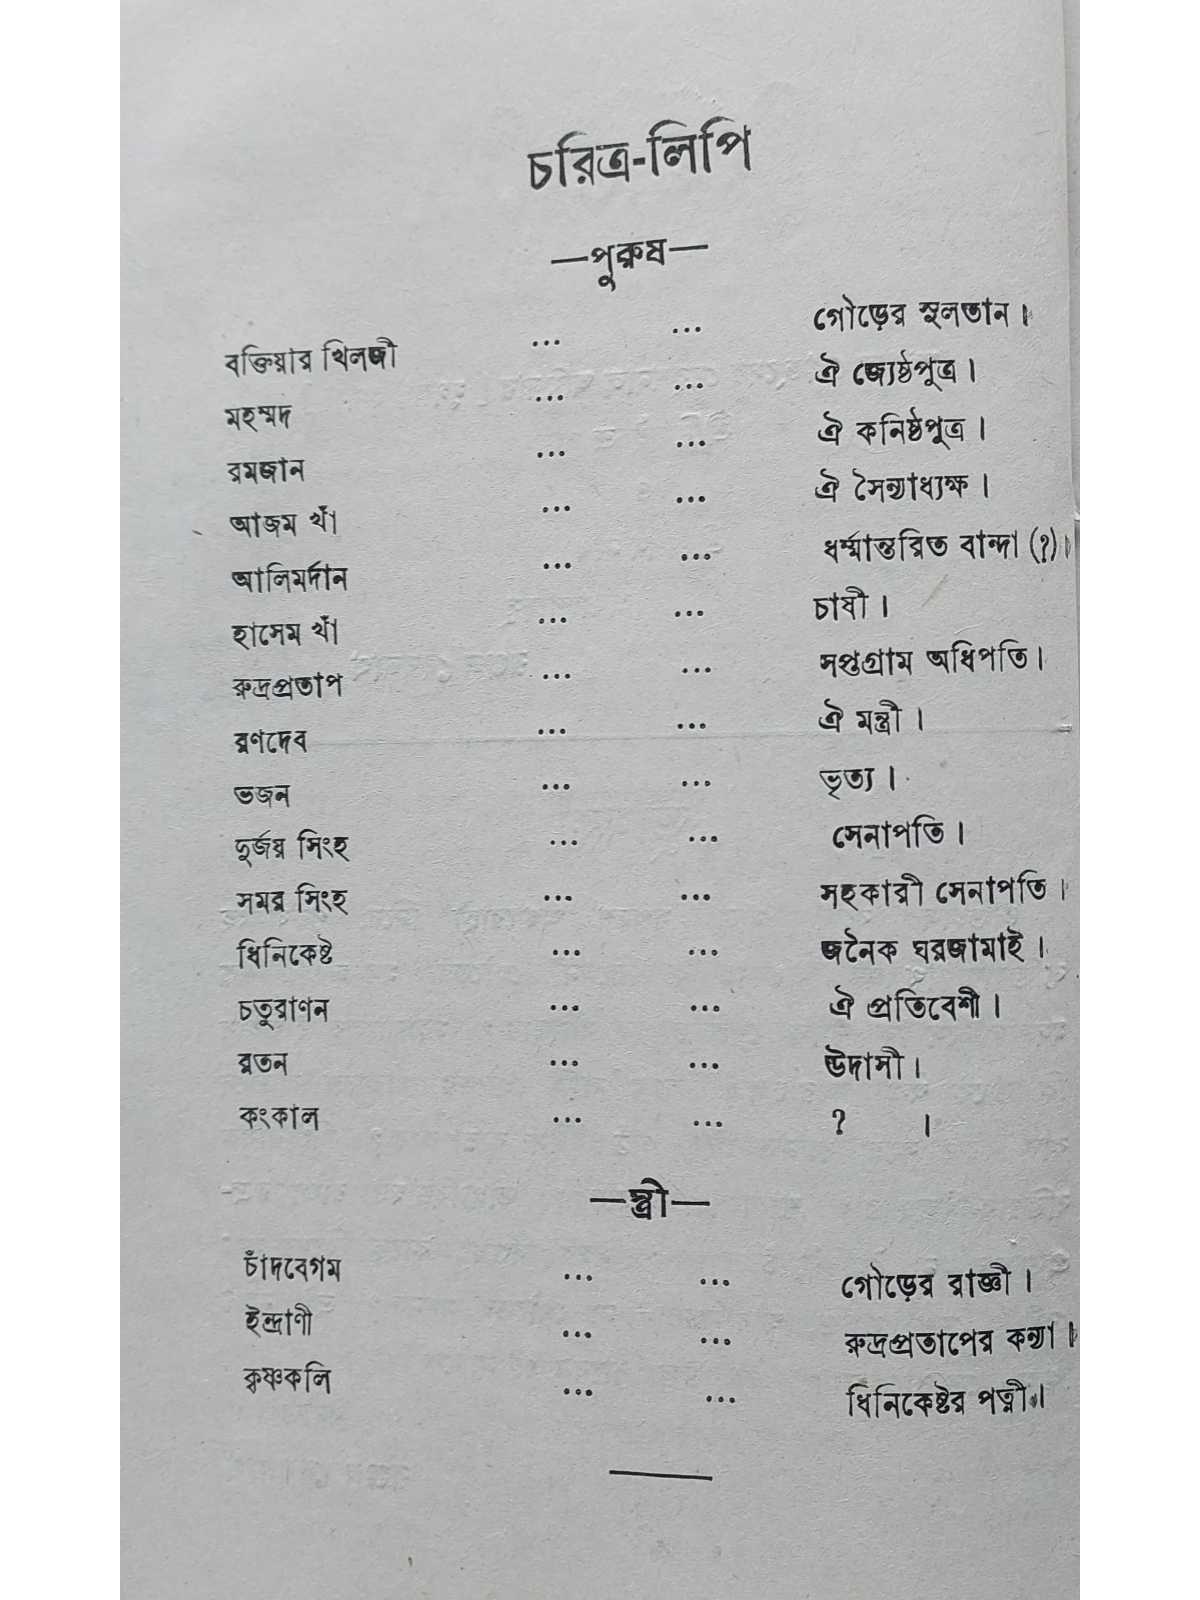 চরিত্র-লিপি
—পুরুষ—
বক্তিয়ার খিলজী ... ... গৌড়ের সুলতান ।
মহম্মদ ... ... ঐ জ্যেষ্ঠপুত্র ।
রমজান ... ... ঐ কনিষ্ঠপুত্র ।
আজম খাঁ ... ... ঐ সৈন্যাধ্যক্ষ ।
আলিমর্দান ... ... ধর্ম্মান্তরিত বান্দা (?) ।
হাসেম খাঁ ... ... চাষী ।
রুদ্রপ্রতাপ ... ... সপ্তগ্রাম অধিপতি ।
রণদেব ... ... ঐ মন্ত্রী ।
ভজন ... ... ভৃত্য ।
দুর্জয় সিংহ ... ... সেনাপতি ।
সমর সিংহ ... ... সহকারী সেনাপতি ।
ধিনিকেষ্ট ... ... জনৈক ঘরজামাই ।
চতুরাণন ... ... ঐ প্রতিবেশী ।
রতন ... ... উদাসী ।
কংকাল ... ... ? ।
—স্ত্রী—
চাঁদবেগম ... ... গৌড়ের রাজ্ঞী ।
ইন্দ্রাণী ... ... রুদ্রপ্রতাপের কন্যা ।
কৃষ্ণকলি ... ... ধিনিকেষ্টর পত্নী ।